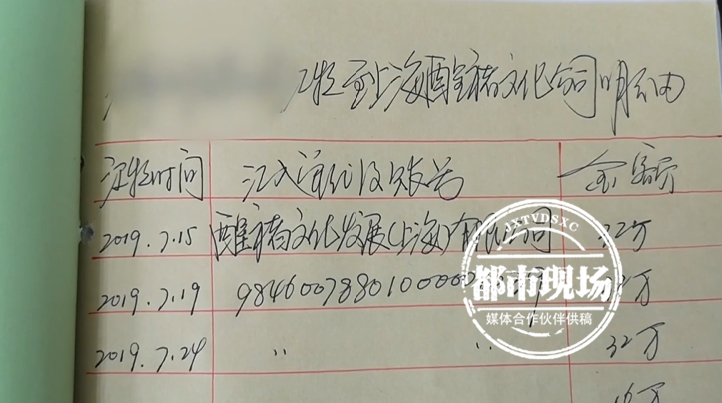 汇款至上海醒褚文化公司明细
汇款时间 汇入单位及账号 金额
2019.7.15 醒褚文化发展(上海)有限公司 32万
2019.7.19 984600788010000 万
2019.7.24 〃 〃 32万
16万
JXTVDSXC
都市现场
媒体合作伙伴供稿